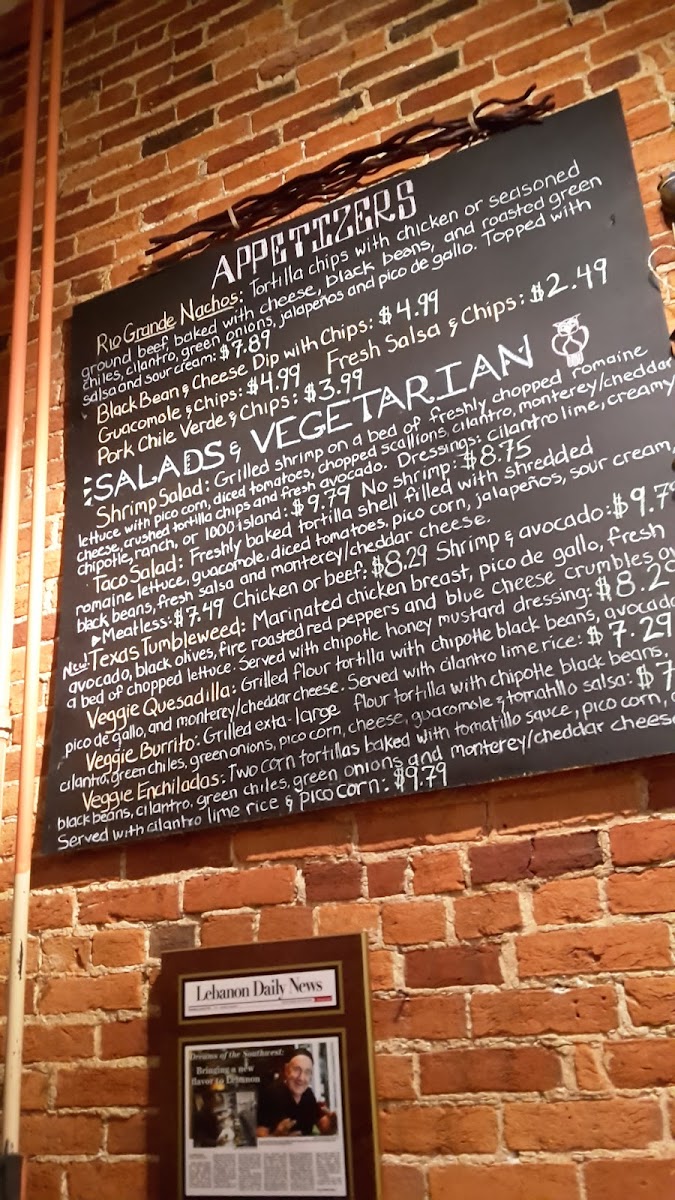 APPETIZERS
Rio Grande Nachos: Tortilla chips with chicken or seasoned
ground beef, baked with cheese, black beans, and roasted green
chiles, cilantro, green onions, jalapeños and pico de gallo. Topped with
salsa and sour cream: $7.89
Black Bean & Cheese Dip with Chips: $4.99
Guacomole & Chips: $4.99 Fresh Salsa & Chips: $2.49
Pork Chile Verde & Chips: $3.99
SALADS & VEGETARIAN
Shrimp Salad: Grilled shrimp on a bed of freshly chopped romaine
lettuce with pico corn, diced tomatoes, chopped scallions, cilantro, monterey/cheddar
cheese, crushed tortilla chips and fresh avocado. Dressings: cilantro lime, creamy
chipotle, ranch, or 1000 island: $9.79 No shrimp: $8.75
Taco Salad: Freshly baked tortilla shell filled with shredded
romaine lettuce, guacomole, diced tomatoes, pico corn, jalapeños, sour cream,
black beans, fresh salsa and monterey/cheddar cheese.
Meatless: $7.49 Chicken or beef: $8.29 Shrimp & avocado: $9.7
New! Texas Tumbleweed: Marinated chicken breast, pico de gallo, fresh
avocado, black olives, fire roasted red peppers and blue cheese crumbles
a bed of chopped lettuce. Served with chipotle honey mustard dressing: $8.2
Veggie Quesadilla: Grilled flour tortilla with chipotle black beans, avocado
pico de gallo, and monterey/cheddar cheese. Served with cilantro lime rice: $7.29
Veggie Burrito: Grilled exta-large flour tortilla with chipotle black beans,
cilantro, green chiles, green onions, pico corn, cheese, guacomole & tomatillo salsa: $7
Veggie Enchiladas: Two corn tortillas baked with tomatillo sauce, pico corn,
black beans, cilantro, green chiles, green onions and monterey/cheddar cheese
Served with cilantro lime rice & pico corn: $9.79
Lebanon Daily News
Dreams of the Southwest:
Bringing a new
flavor to Lebanon